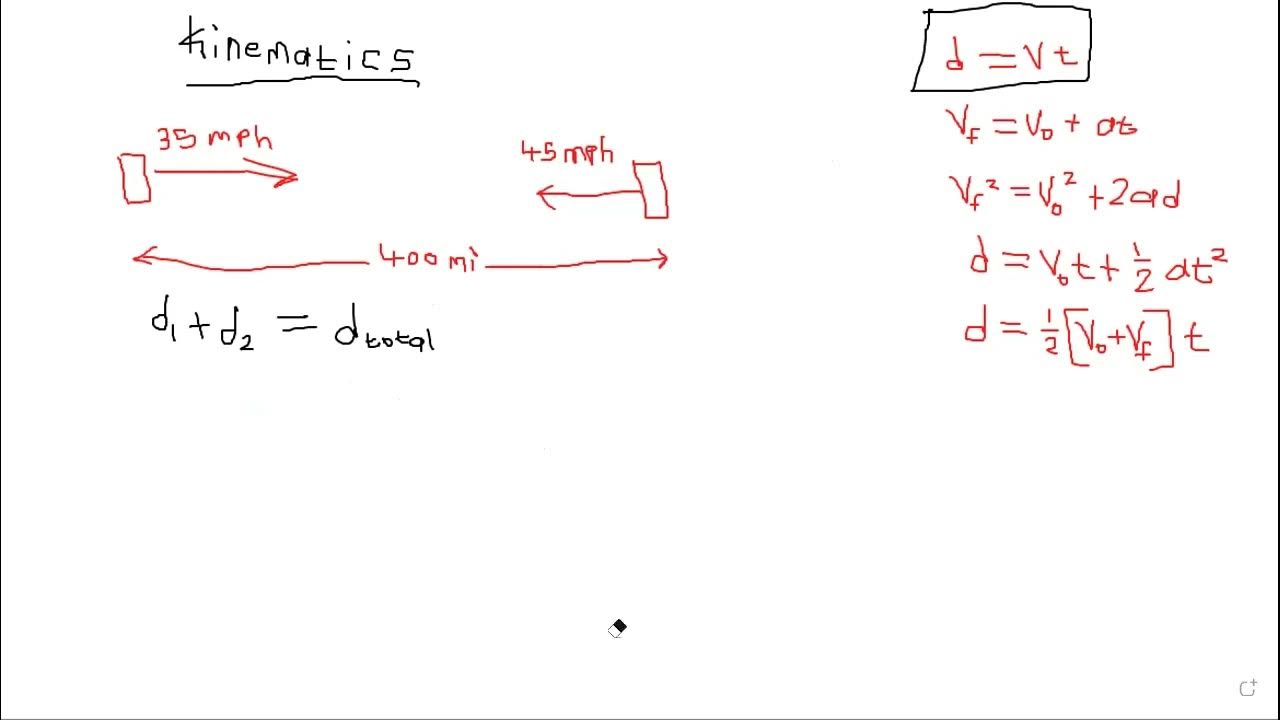 Kinematics
35 mph
45 mph
400 mi
d₁ + d₂ = d_total
d = Vt
V_f = V₀ + at
V_f² = V₀² + 2ad
d = V₀t + ½ at²
d = ½ [V₀ + V_f] t